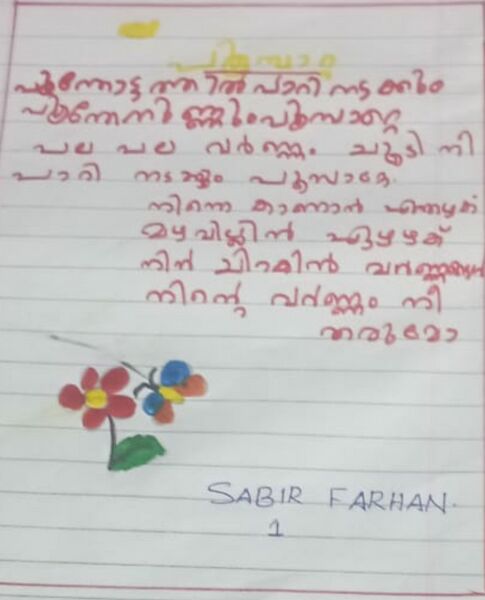 പൂമ്പാറ്റ
പൂന്തോട്ടത്തിൽ പാറി നടക്കും
പൂന്തേനുണ്ണും പൂമ്പാറ്റെ
പല പല വർണ്ണം ചൂടി നീ
പാറി നടക്കും പൂമ്പാറ്റേ
നിന്നെ കാണാൻ എന്തഴക്
മഴവില്ലിൻ ഏഴഴക്
നിൻ ചിറകിൻ വർണ്ണങ്ങൾ
നിന്റെ വർണ്ണം നീ
തരുമോ
SABIR FARHAN.
1